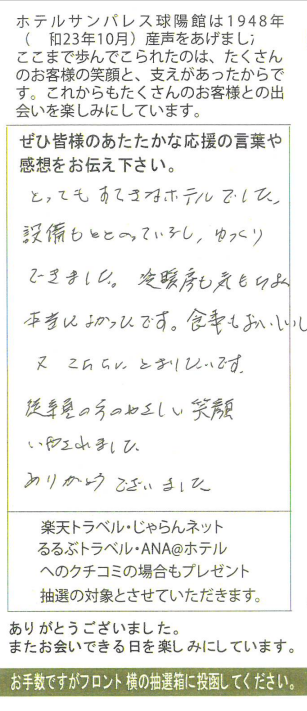 ホテルサンパレス球陽館は1948年
( 和23年10月）産声をあげまし
ここまで歩んでこられたのは、たくさん
のお客様の笑顔と、支えがあったからで
す。これからもたくさんのお客様との出
会いを楽しみにしています。
ぜひ皆様のあたたかな応援の言葉や
感想をお伝え下さい。
とってもすてきなホテルでした。
設備もととのっているし，ゆっくり
できました。冷暖房も気もちよく
本当によかったです。食事もおいしいし
又 こちらに とまりたいです。
従業員の方のやさしい笑顔
いやされました
ありがとうございました
楽天トラベル・じゃらんネット
るるぶトラベル・ANA@ホテル
へのクチコミの場合もプレゼント
抽選の対象とさせていただきます。
ありがとうございました。
またお会いできる日を楽しみにしています。
お手数ですがフロント横の抽選箱に投函してください。